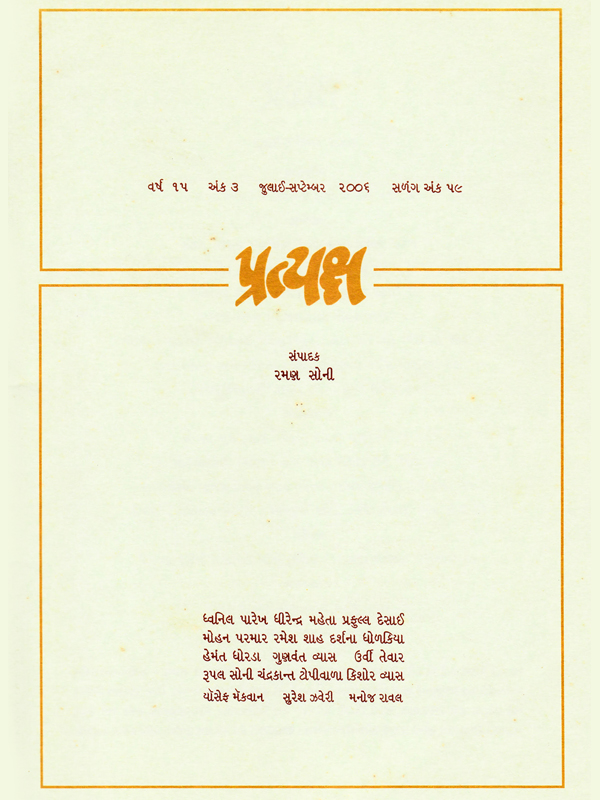 વર્ષ ૧૫ અંક ૩ જુલાઈ-સપ્ટેમ્બર ૨૦૦૬ સળંગ અંક ૫૯
પ્રત્યક્ષ
સંપાદક
રમણ સોની
ધ્વનિલ પારેખ ધીરેન્દ્ર મહેતા પ્રફુલ્લ દેસાઈ
મોહન પરમાર રમેશ શાહ દર્શના ધોળકિયા
હેમંત ધોરડા ગુણવંત વ્યાસ ઉર્વી તેવાર
રૂપલ સોની ચંદ્રકાન્ત ટોપીવાળા કિશોર વ્યાસ
યૉસેફ મૅકવાન સુરેશ ઝવેરી મનોજ રાવલ